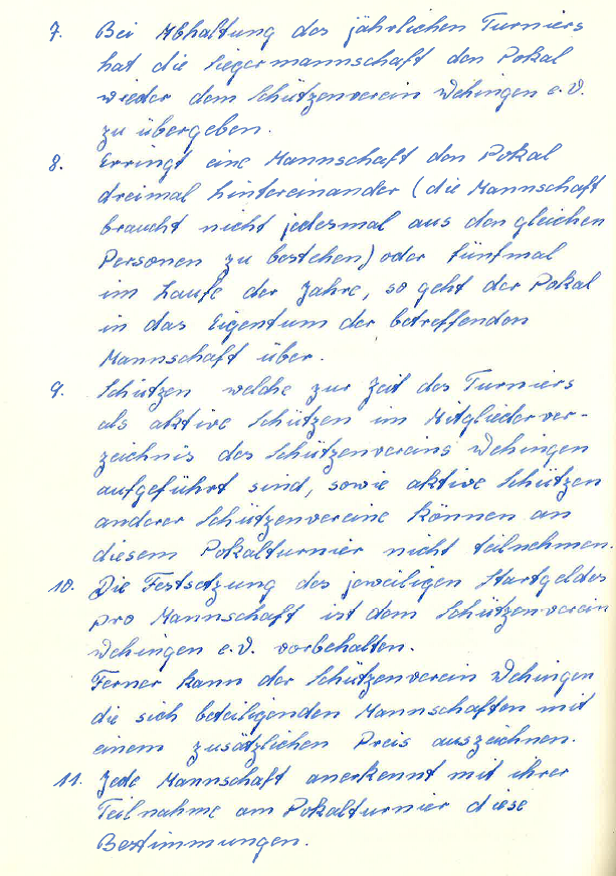 7. Bei Abhaltung des jährlichen Turniers
hat die Siegermannschaft den Pokal
wieder dem Schützenverein Wehingen e.V.
zu übergeben.
8. Erringt eine Mannschaft den Pokal
dreimal hintereinander (die Mannschaft
braucht nicht jedesmal aus den gleichen
Personen zu bestehen) oder fünfmal
im Laufe der Jahre, so geht der Pokal
in das Eigentum der betreffenden
Mannschaft über.
9. Schützen welche zur Zeit des Turniers
als aktive Schützen im Mitgliederver-
zeichnis des Schützenvereins Wehingen
aufgeführt sind, sowie aktive Schützen
anderer Schützenvereine können an
diesem Pokalturnier nicht teilnehmen.
10. Die Festsetzung des jeweiligen Startgeldes
pro Mannschaft ist dem Schützenverein
Wehingen e.V. vorbehalten.
Ferner kann der Schützenverein Wehingen
die sich beteiligenden Mannschaften mit
einem zusätzlichen Preis auszeichnen.
11. Jede Mannschaft anerkennt mit ihrer
Teilnahme am Pokalturnier diese
Bestimmungen.